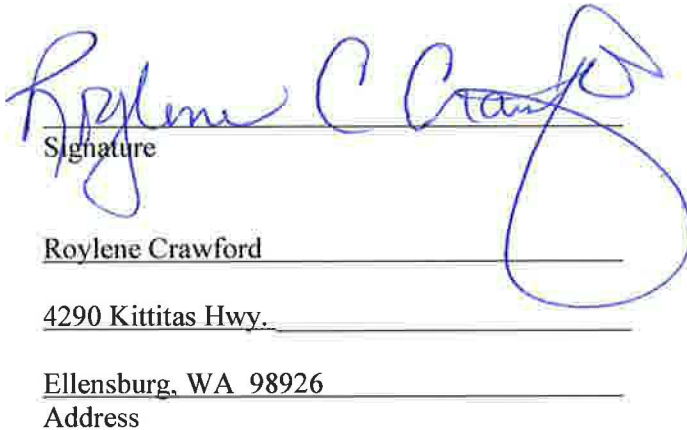 Roylene C Crawford
Signature
Roylene Crawford
4290 Kittitas Hwy.
Ellensburg, WA 98926
Address